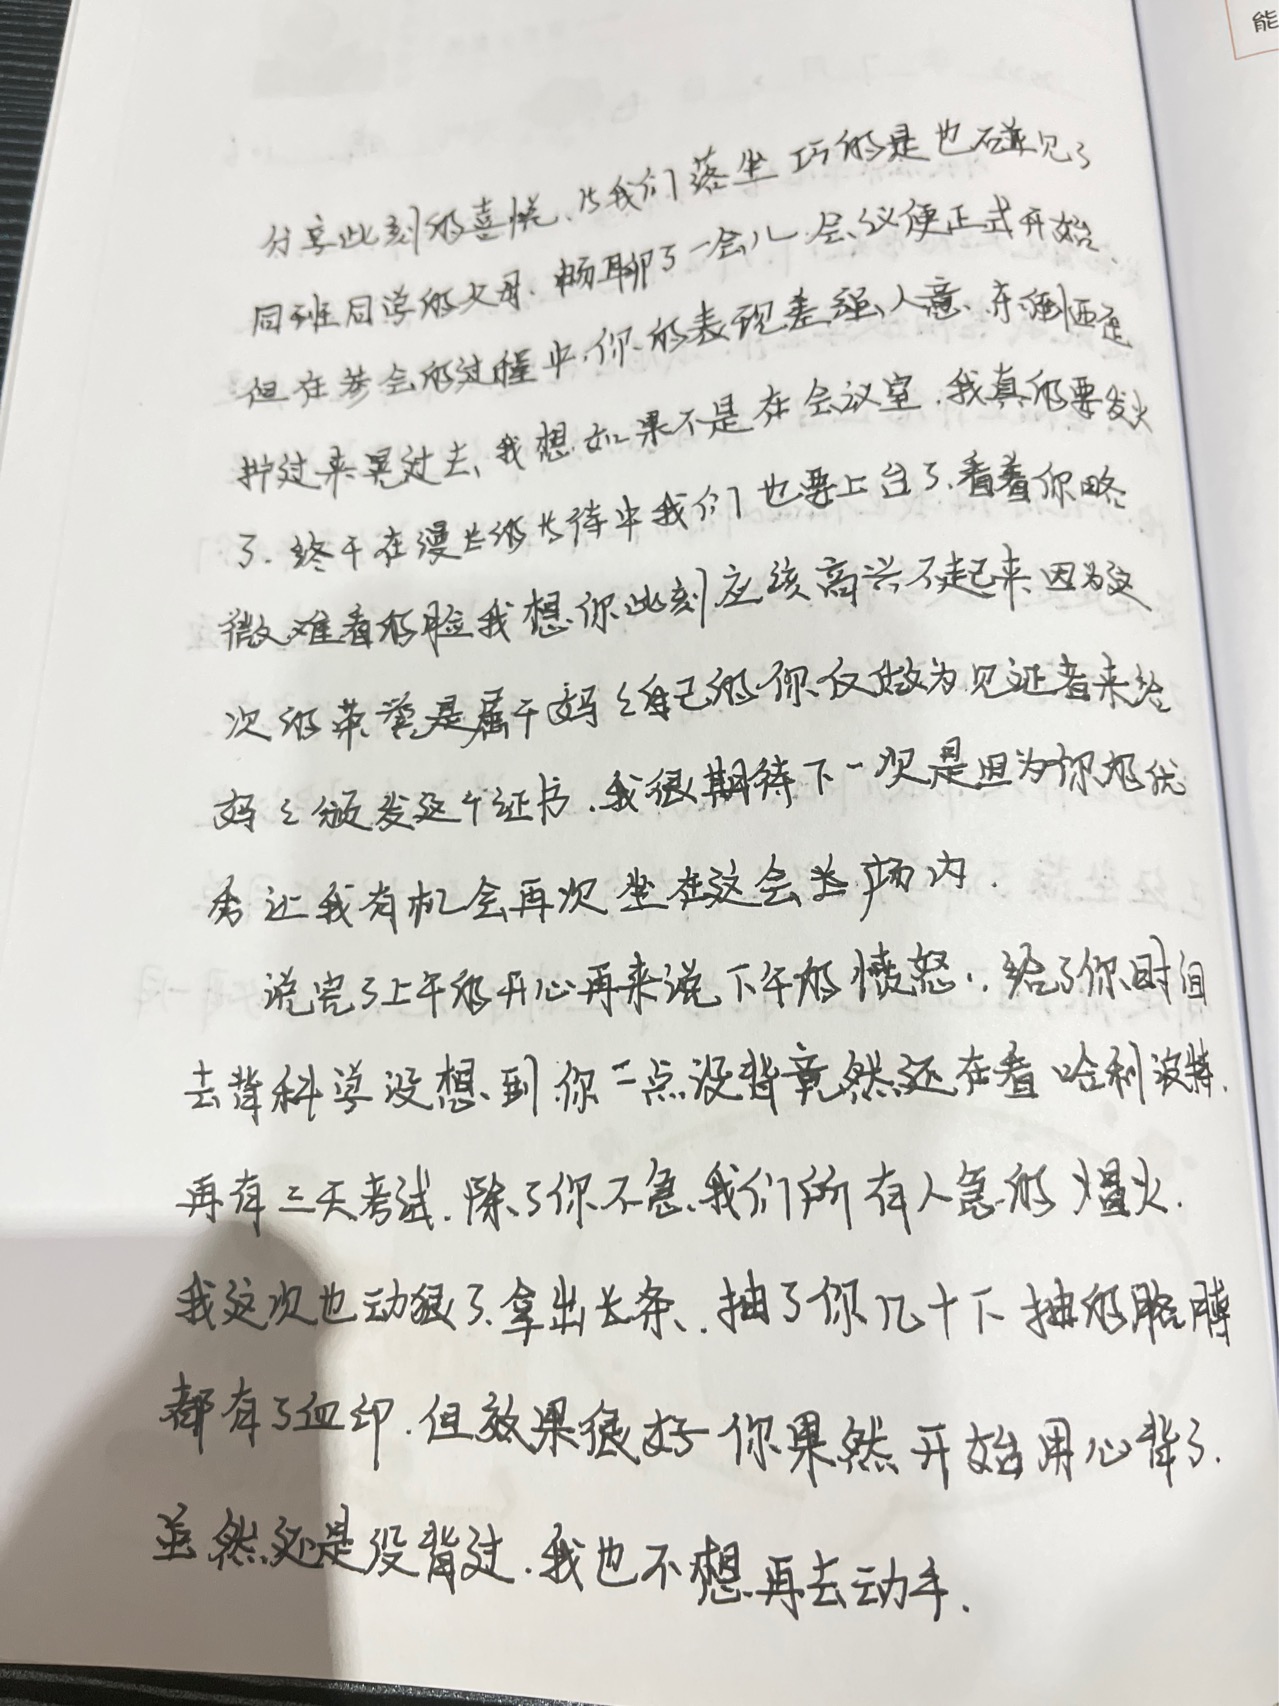 能
分享此刻的喜悦、与我们落坐巧的是也碰见了
同班同学的父母.畅聊了一会儿.会议便正式开始.
但在参会的过程中.你的表现差强人意、东倒西歪
拧过来晃过去、我想如果不是在会议室.我真的要发火
了.终于在漫长的等待中我们也要上台了.看着你略
微难看的脸我想你此刻应该高兴不起来因为这
次的荣誉是属于妈妈自己的你仅做为见证者来给
妈妈颁发这个证书.我很期待下一次是因为你的优
秀让我有机会再次坐在这会场内.
说完了上午的开心再来说下午的愤怒.给了你时间
去背科学没想到你一点没背竟然还在看哈利波特.
再有三天考试.除了你不急.我们所有人急的熅火.
我这次也动狠了拿出长条.抽了你几十下抽的胳膊
都有了血印.但效果很好你果然开始用心背了.
虽然还是没背过.我也不想再去动手.